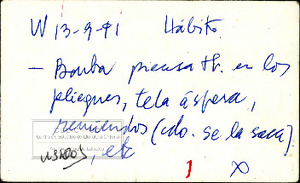 W 13-9-91 Hábito
– Bomba piensa tb. en los
pliegues, tela áspera,
remiendos (cdo. se la saca)
, etc
1 X